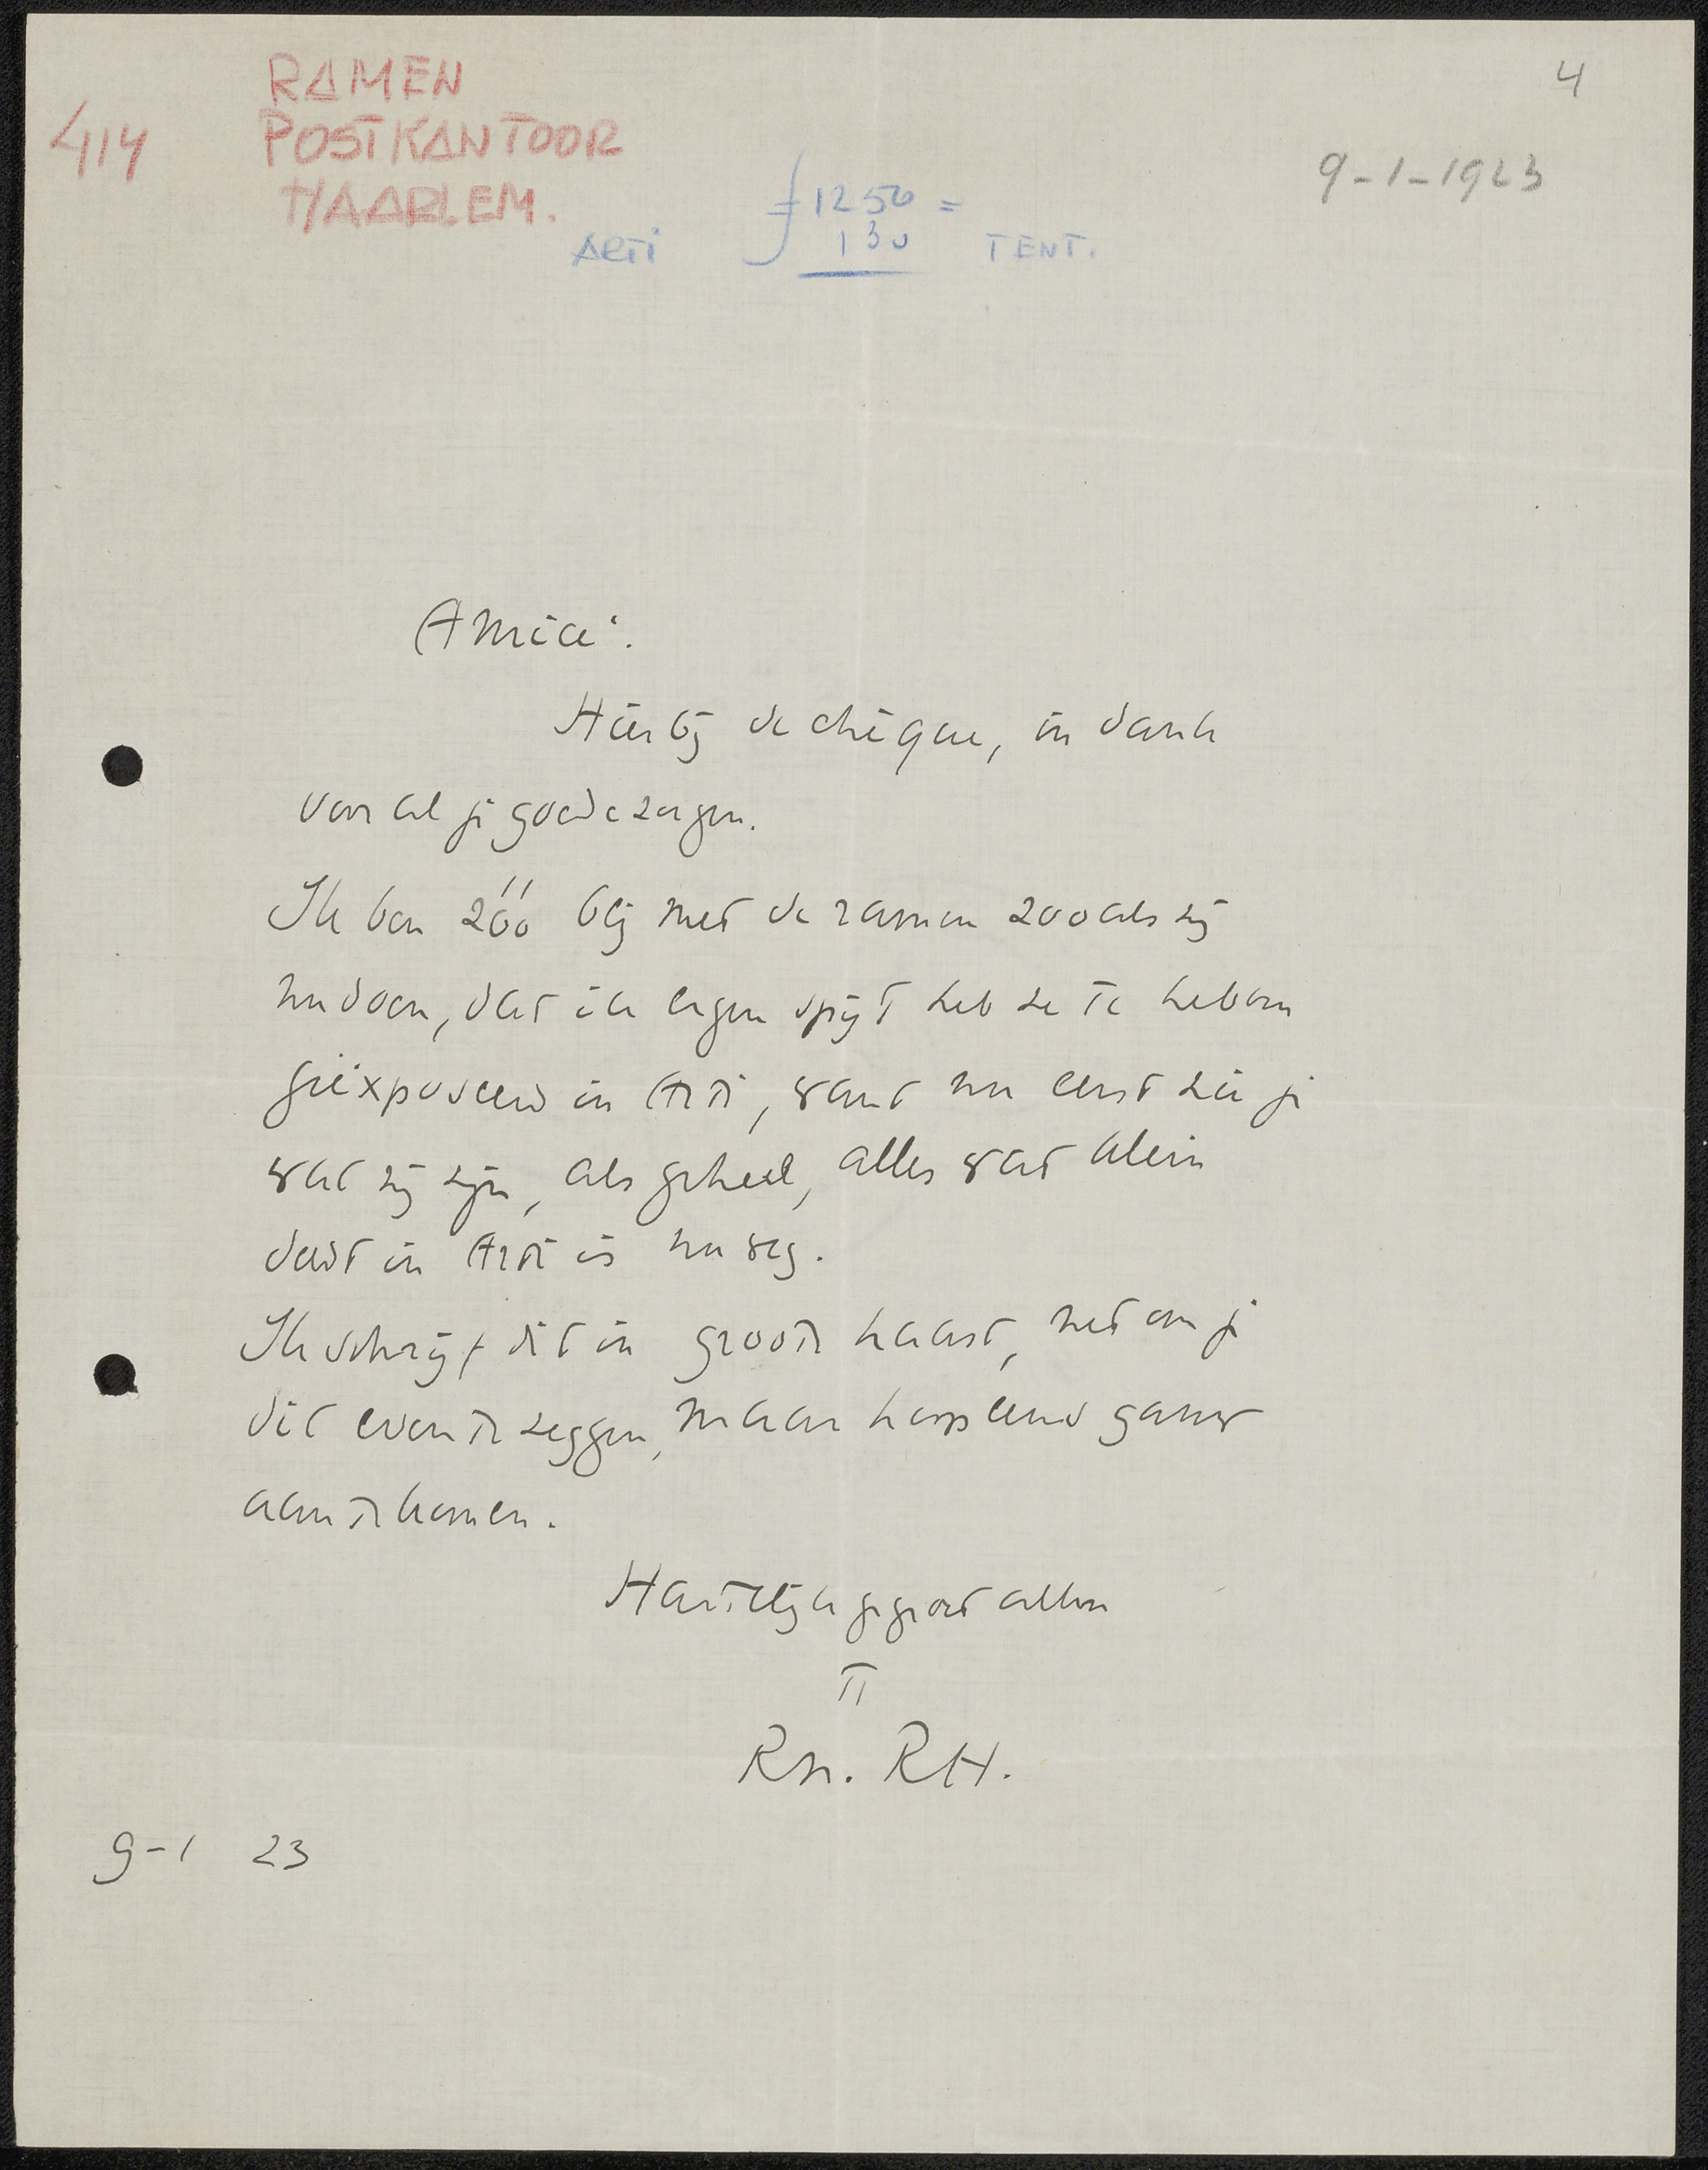 4
RAMEN
414 POSTKANTOOR
HAARLEM.
9-1-1923
ARTI ƒ 1250 =
130 TENT.
Amice.
Hierbij de chèque, in dank
voor al je goede zorgen.
Ik ben zóó blij met de ramen zooals zij
nu doen, dat ik eigen spijt heb ze te hebben
geëxposeerd in Arti, want nu eerst zie je
wat zij zijn, als geheel, alles wat klein
deed in Arti is nu weg.
Ik schrijf dit in groote haast, net om je
dit even te zeggen, maar hoop eens gauw
aan te komen.
Hartelijk gegroet allen
tt
Rn. RH.
9-1 23